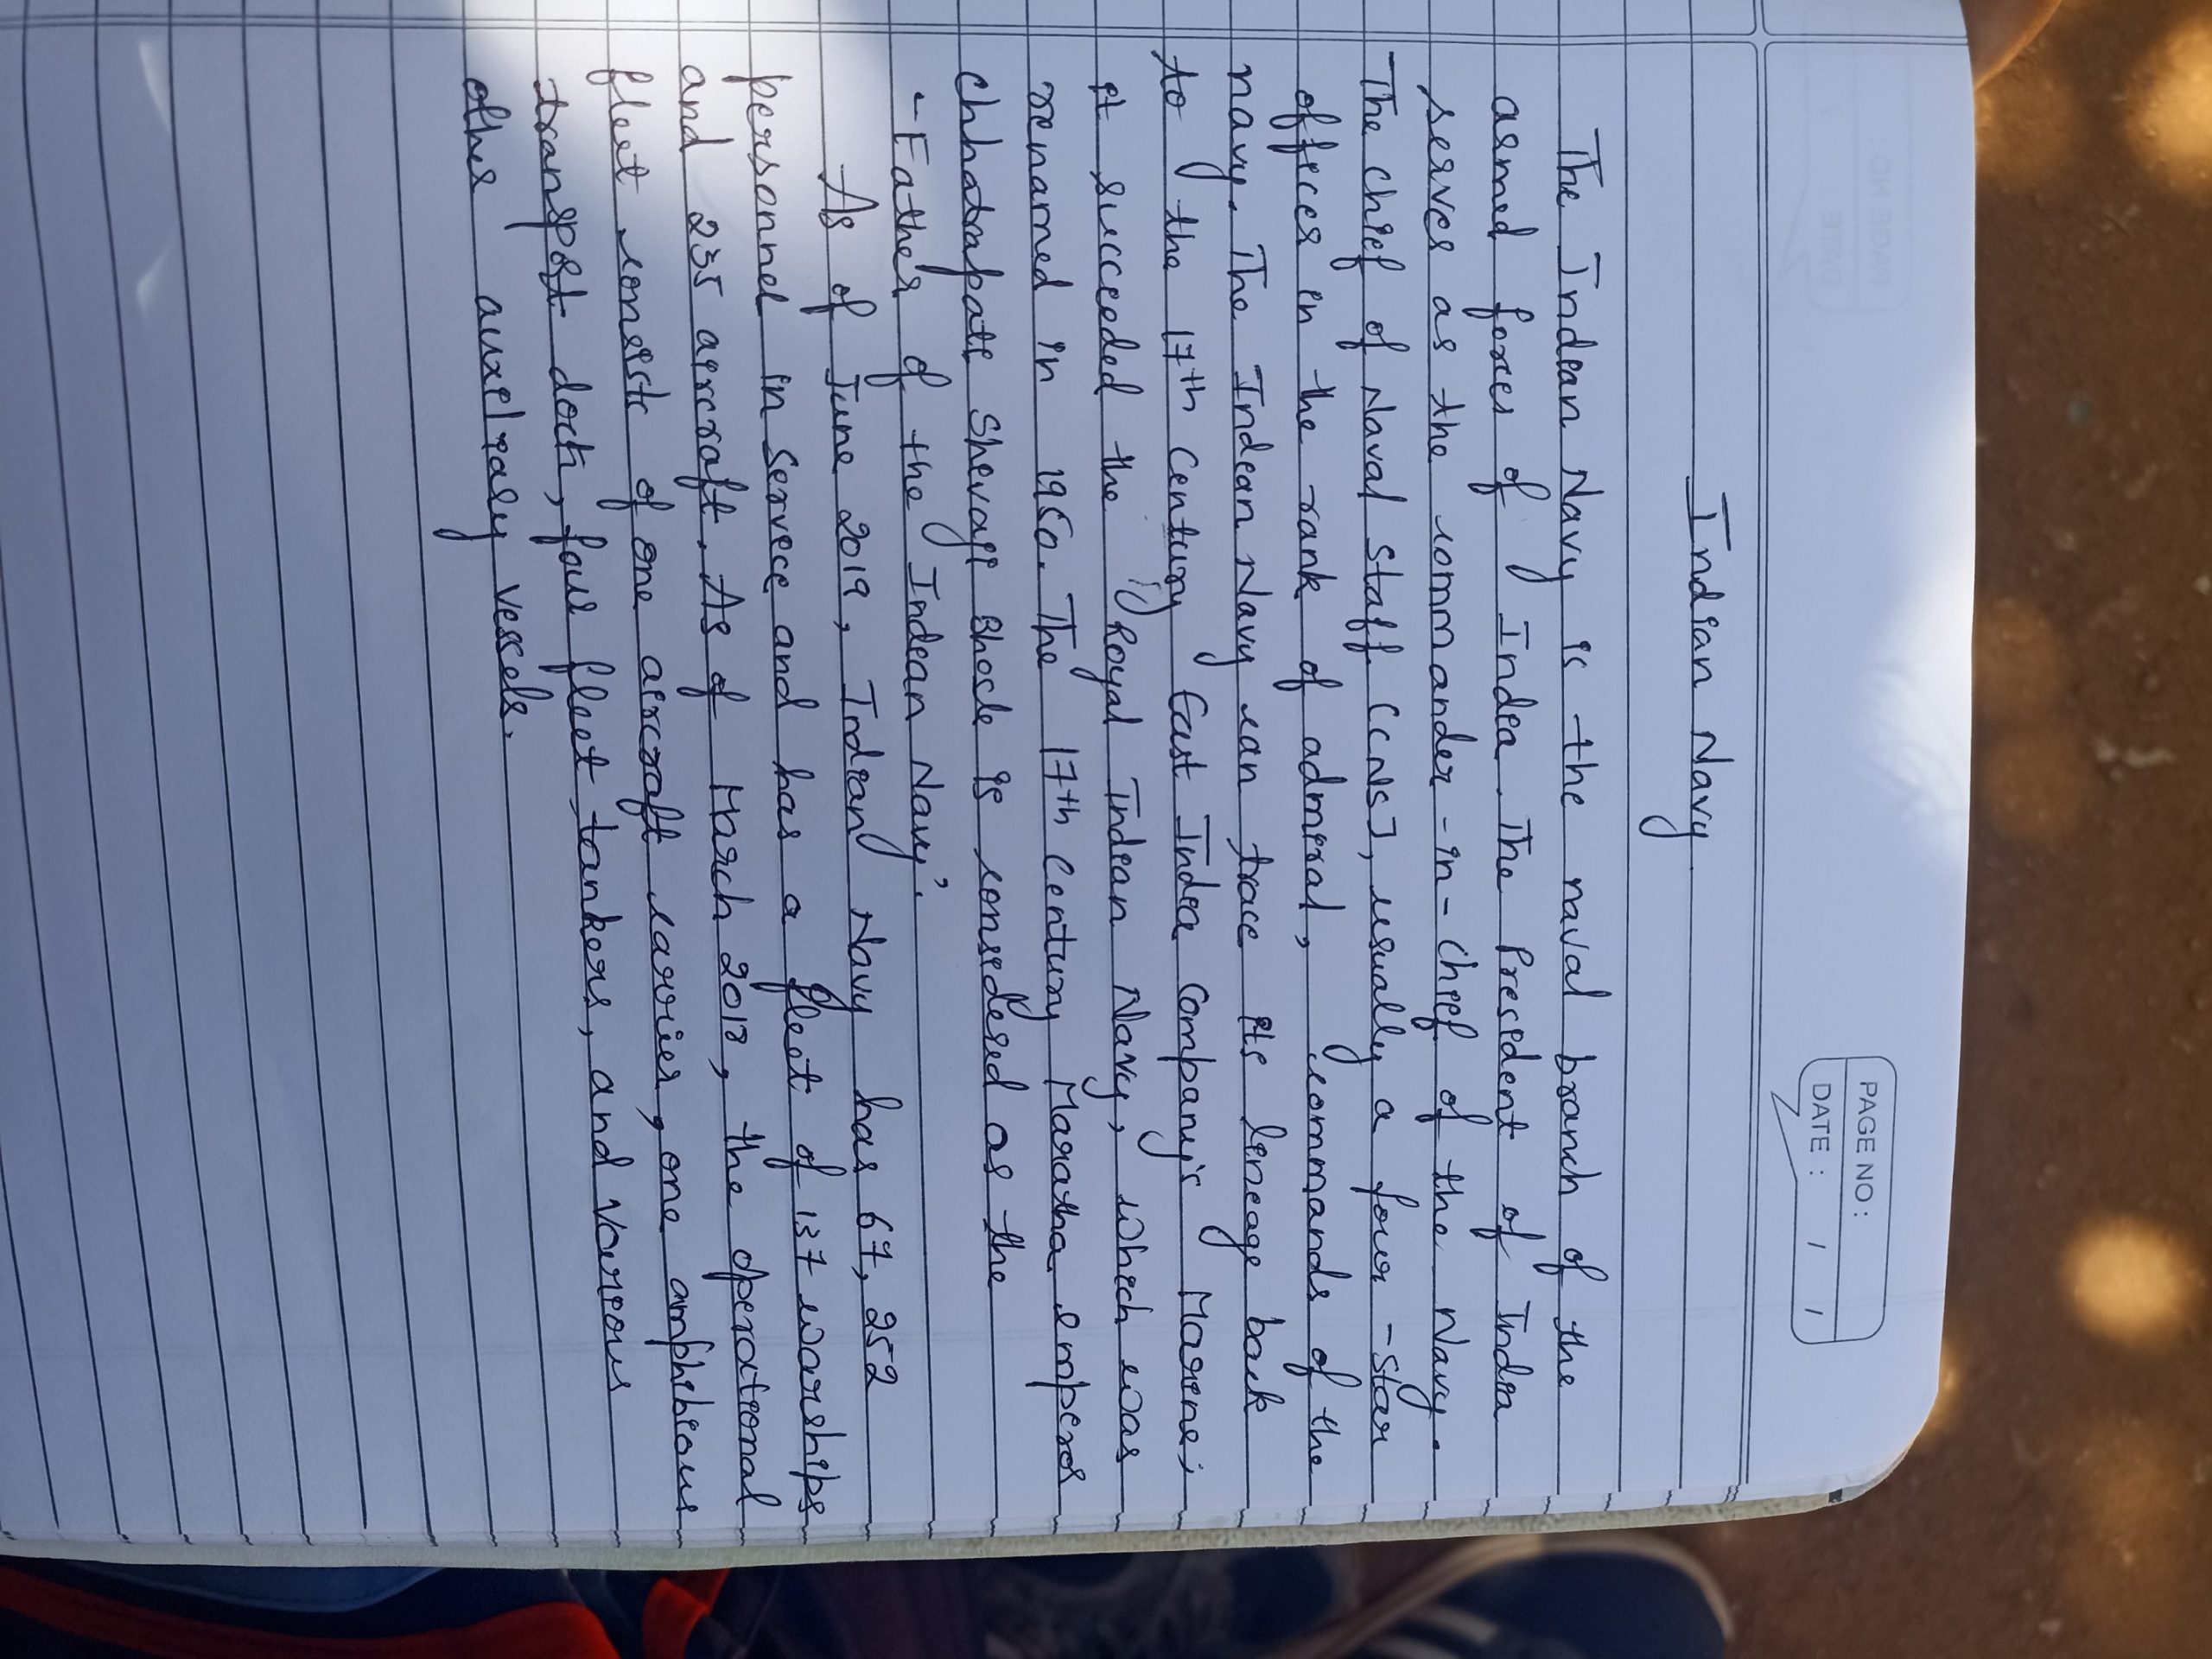 PAGE NO :
DATE : / /
Indian Navy
The Indian Navy is the naval branch of the
armed forces of India. The President of India
serves as the commander-in-chief of the Navy.
The chief of Naval staff (CNS), usually a four-star
officer in the rank of admiral, commands of the
navy. The Indian Navy can trace its lineage back
to the 17th century East India Company's Marine;
it succeeded the Royal Indian Navy, which was
renamed in 1950. The 17th century Maratha emperor
Chhatrapati Shivaji Bhosle is considered as the
-Father of the Indian Navy'.
As of June 2019, Indian Navy has 67,252
personnel in service and has a fleet of 137 warships
and 235 aircraft. As of March 2018, the operational
fleet consists of one aircraft carrier, one amphibious
transport dock, four fleet tankers, and various
other auxiliary vessels.